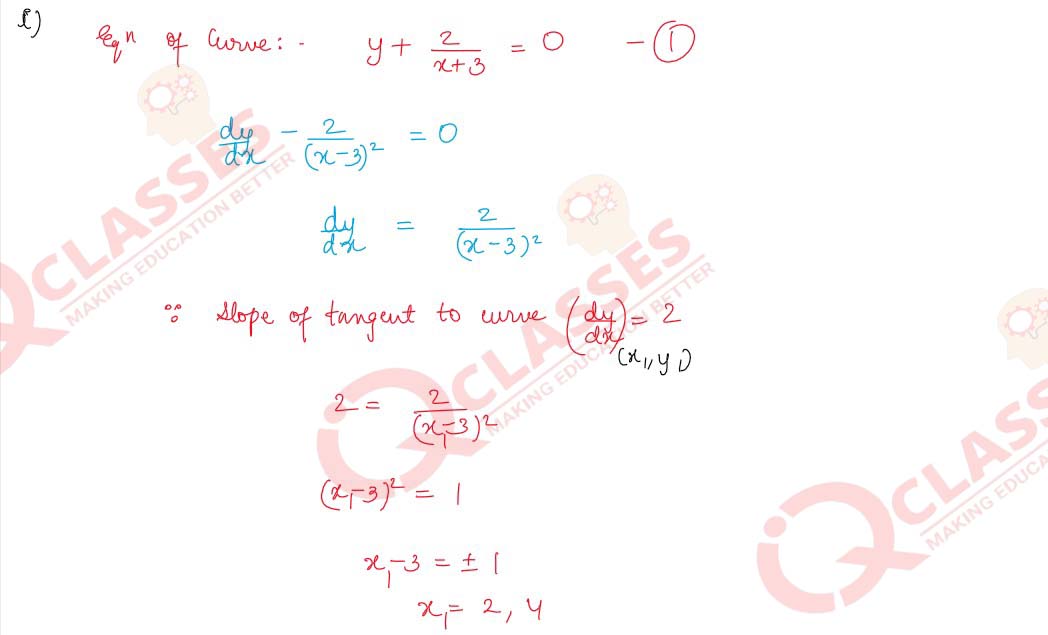 l)
Eqn of Curve:- y + 2/(x+3) = 0 - ①
dy/dx - 2/(x-3)² = 0
dy/dx = 2/(x-3)²
∵ Slope of tangent to curve (dy/dx)(x₁, y₁) = 2
2 = 2/(x₁-3)²
(x₁-3)² = 1
x₁-3 = ± 1
x₁ = 2, 4
QCLASSES
MAKING EDUCATION BETTER
QCLASSES
MAKING EDUCATION BETTER
QCLASSES
MAKING EDUCA